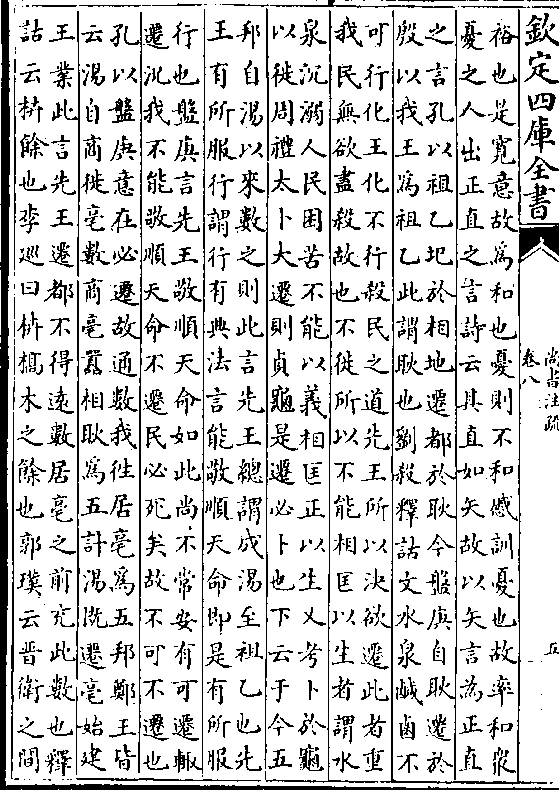 欽定四庫全書
尚書注疏
卷八
五
裕也是寛意故為和也憂則不和慼訓憂也故率和衆
憂之人出正直之言詩云其直如矢故以矢言為正直
之言孔以祖乙圯於相地遷都於耿今盤庚自耿遷於
殷以我王為祖乙此謂耿也劉殺釋詁文水泉鹹鹵不
可行化王化不行殺民之道先王所以決欲遷此者重
我民無欲盡殺故也不徙所以不能相匡以生者謂水
泉沉溺人民困苦不能以義相匡正以生乂考卜於龜
以徙周禮太卜大遷則貞龜是遷必卜也下云于今五
邦自湯以來數之則此言先王總謂成湯至祖乙也先
王有所服行謂行有典法言能敬順天命即是有所服
行也盤庚言先王敬順天命如此尚不常安有可遷輙
遷況我不能敬順天命不遷民必死矣故不可不遷也
孔以盤庚意在必遷故通數我徃居亳為五邦鄭王皆
云湯自商徙亳數商亳囂相耿為五計湯既遷亳始建
王業此言先王遷都不得逺數居亳之前充此數也釋
詁云枿餘也李廵曰枿槁木之餘也郭璞云晉衛之間